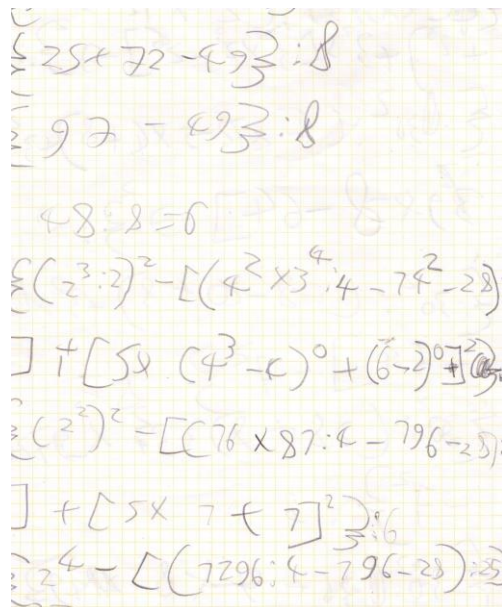 {25+72-49}:8
{97-49}:8
48:8=6
{(2³:2)²-[(4²×3⁴:4-14²-28)
]+[5×(4³-4)⁰+(6-2)⁰]²
{(2²)²-[(16×81:4-196-28):
]+[5×1+1]²}:6
{2⁴-[(1296:4-196-28):25